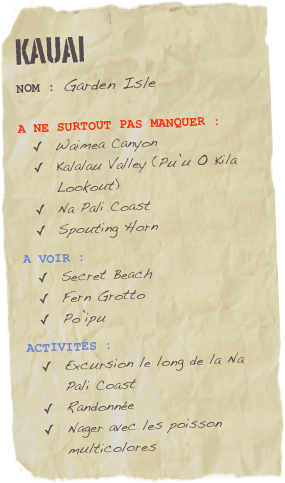 KAUAI
NOM : Garden Isle
A NE SURTOUT PAS MANQUER :
✓ Waimea Canyon
✓ Kalalau Valley (Pu'u O Kila
Lookout)
✓ Na Pali Coast
✓ Spouting Horn
A VOIR :
✓ Secret Beach
✓ Fern Grotto
✓ Po'ipu
ACTIVITÉS :
✓ Excursion le long de la Na
Pali Coast
✓ Randonnée
✓ Nager avec les poisson
multicolores